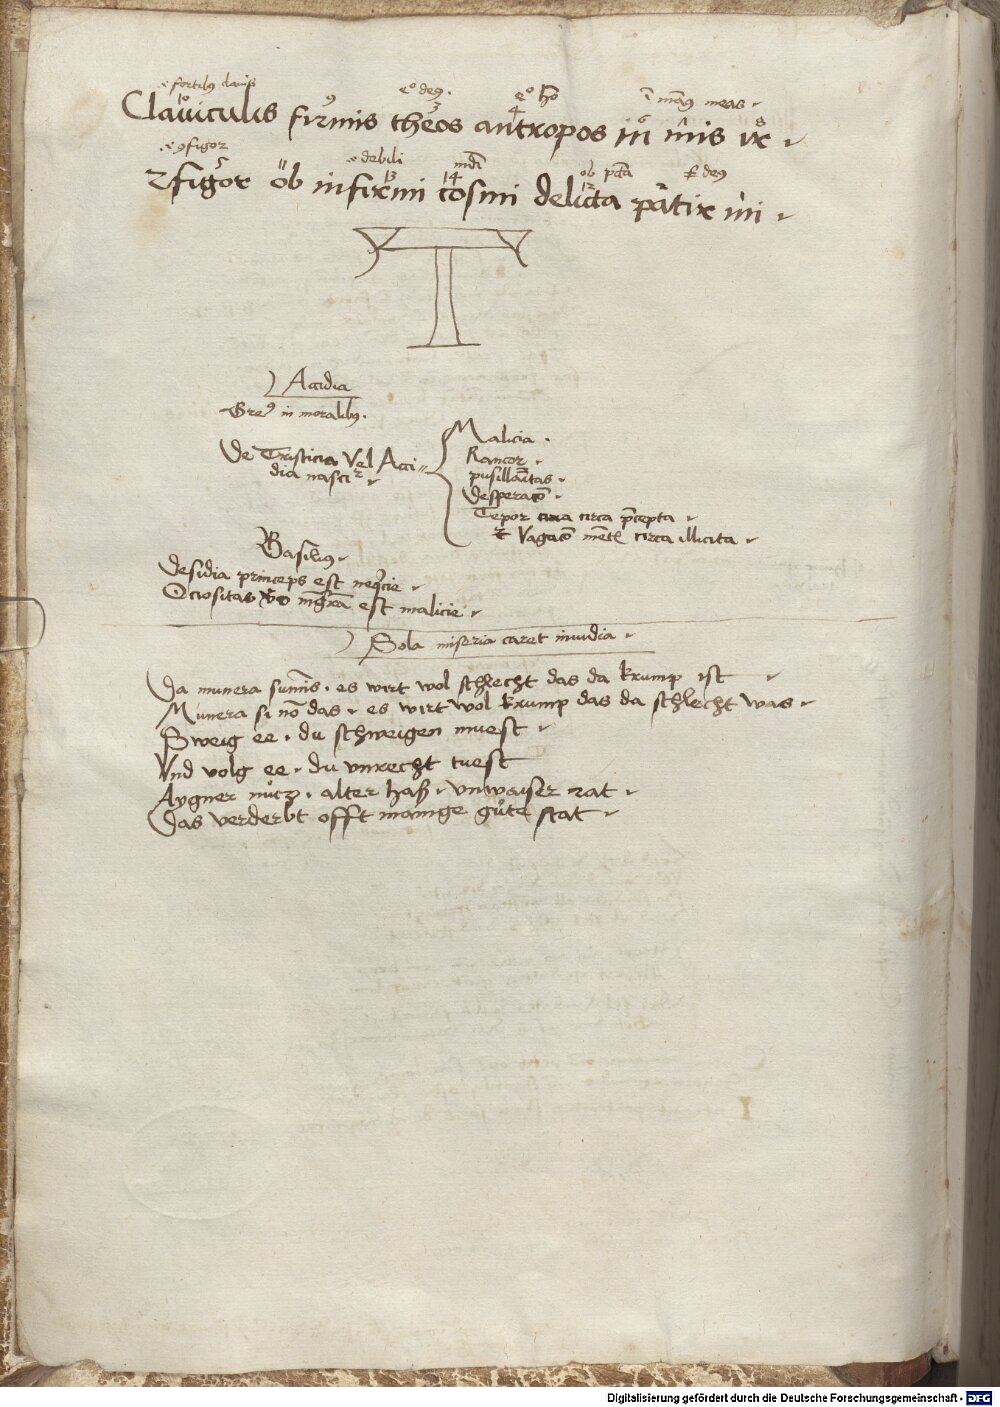 .i. fortibus clavis ego deus . ego homo in manus meas
10 9 3 4 6 8
Clauiculis firmis theos antropos in mis ix
.i. 9figor .i. debili mundi ob peccata deus
5 11 13 14 12
2figor ob infirmi cosmi delicta patir mi
Accidia
Greg9 in moralibus .
De Tristicia Vel Acci=
dia nascitur
Malicia .
Rancor
pusillanimitas
desperaco
Tepor circa precepta
Et Vagaco mentis circa illicita
Basilius
Desidia princeps est nequicie
Ociositas vero est malicie
Sola miseria caret inuidia
Da munera summis . es wirt wol schlecht das da krump ist
Munera si non das . es wirt wol krump das da schlecht was
Sweig ee . du schweigen muest
Vnd volg ee . du vnrecht tuest
Aygner nutz . alter haß . vnwaiser rat
Das verderbt offt mainge gute stat
Digitalisierung gefördert durch die Deutsche Forschungsgemeinschaft - DFG